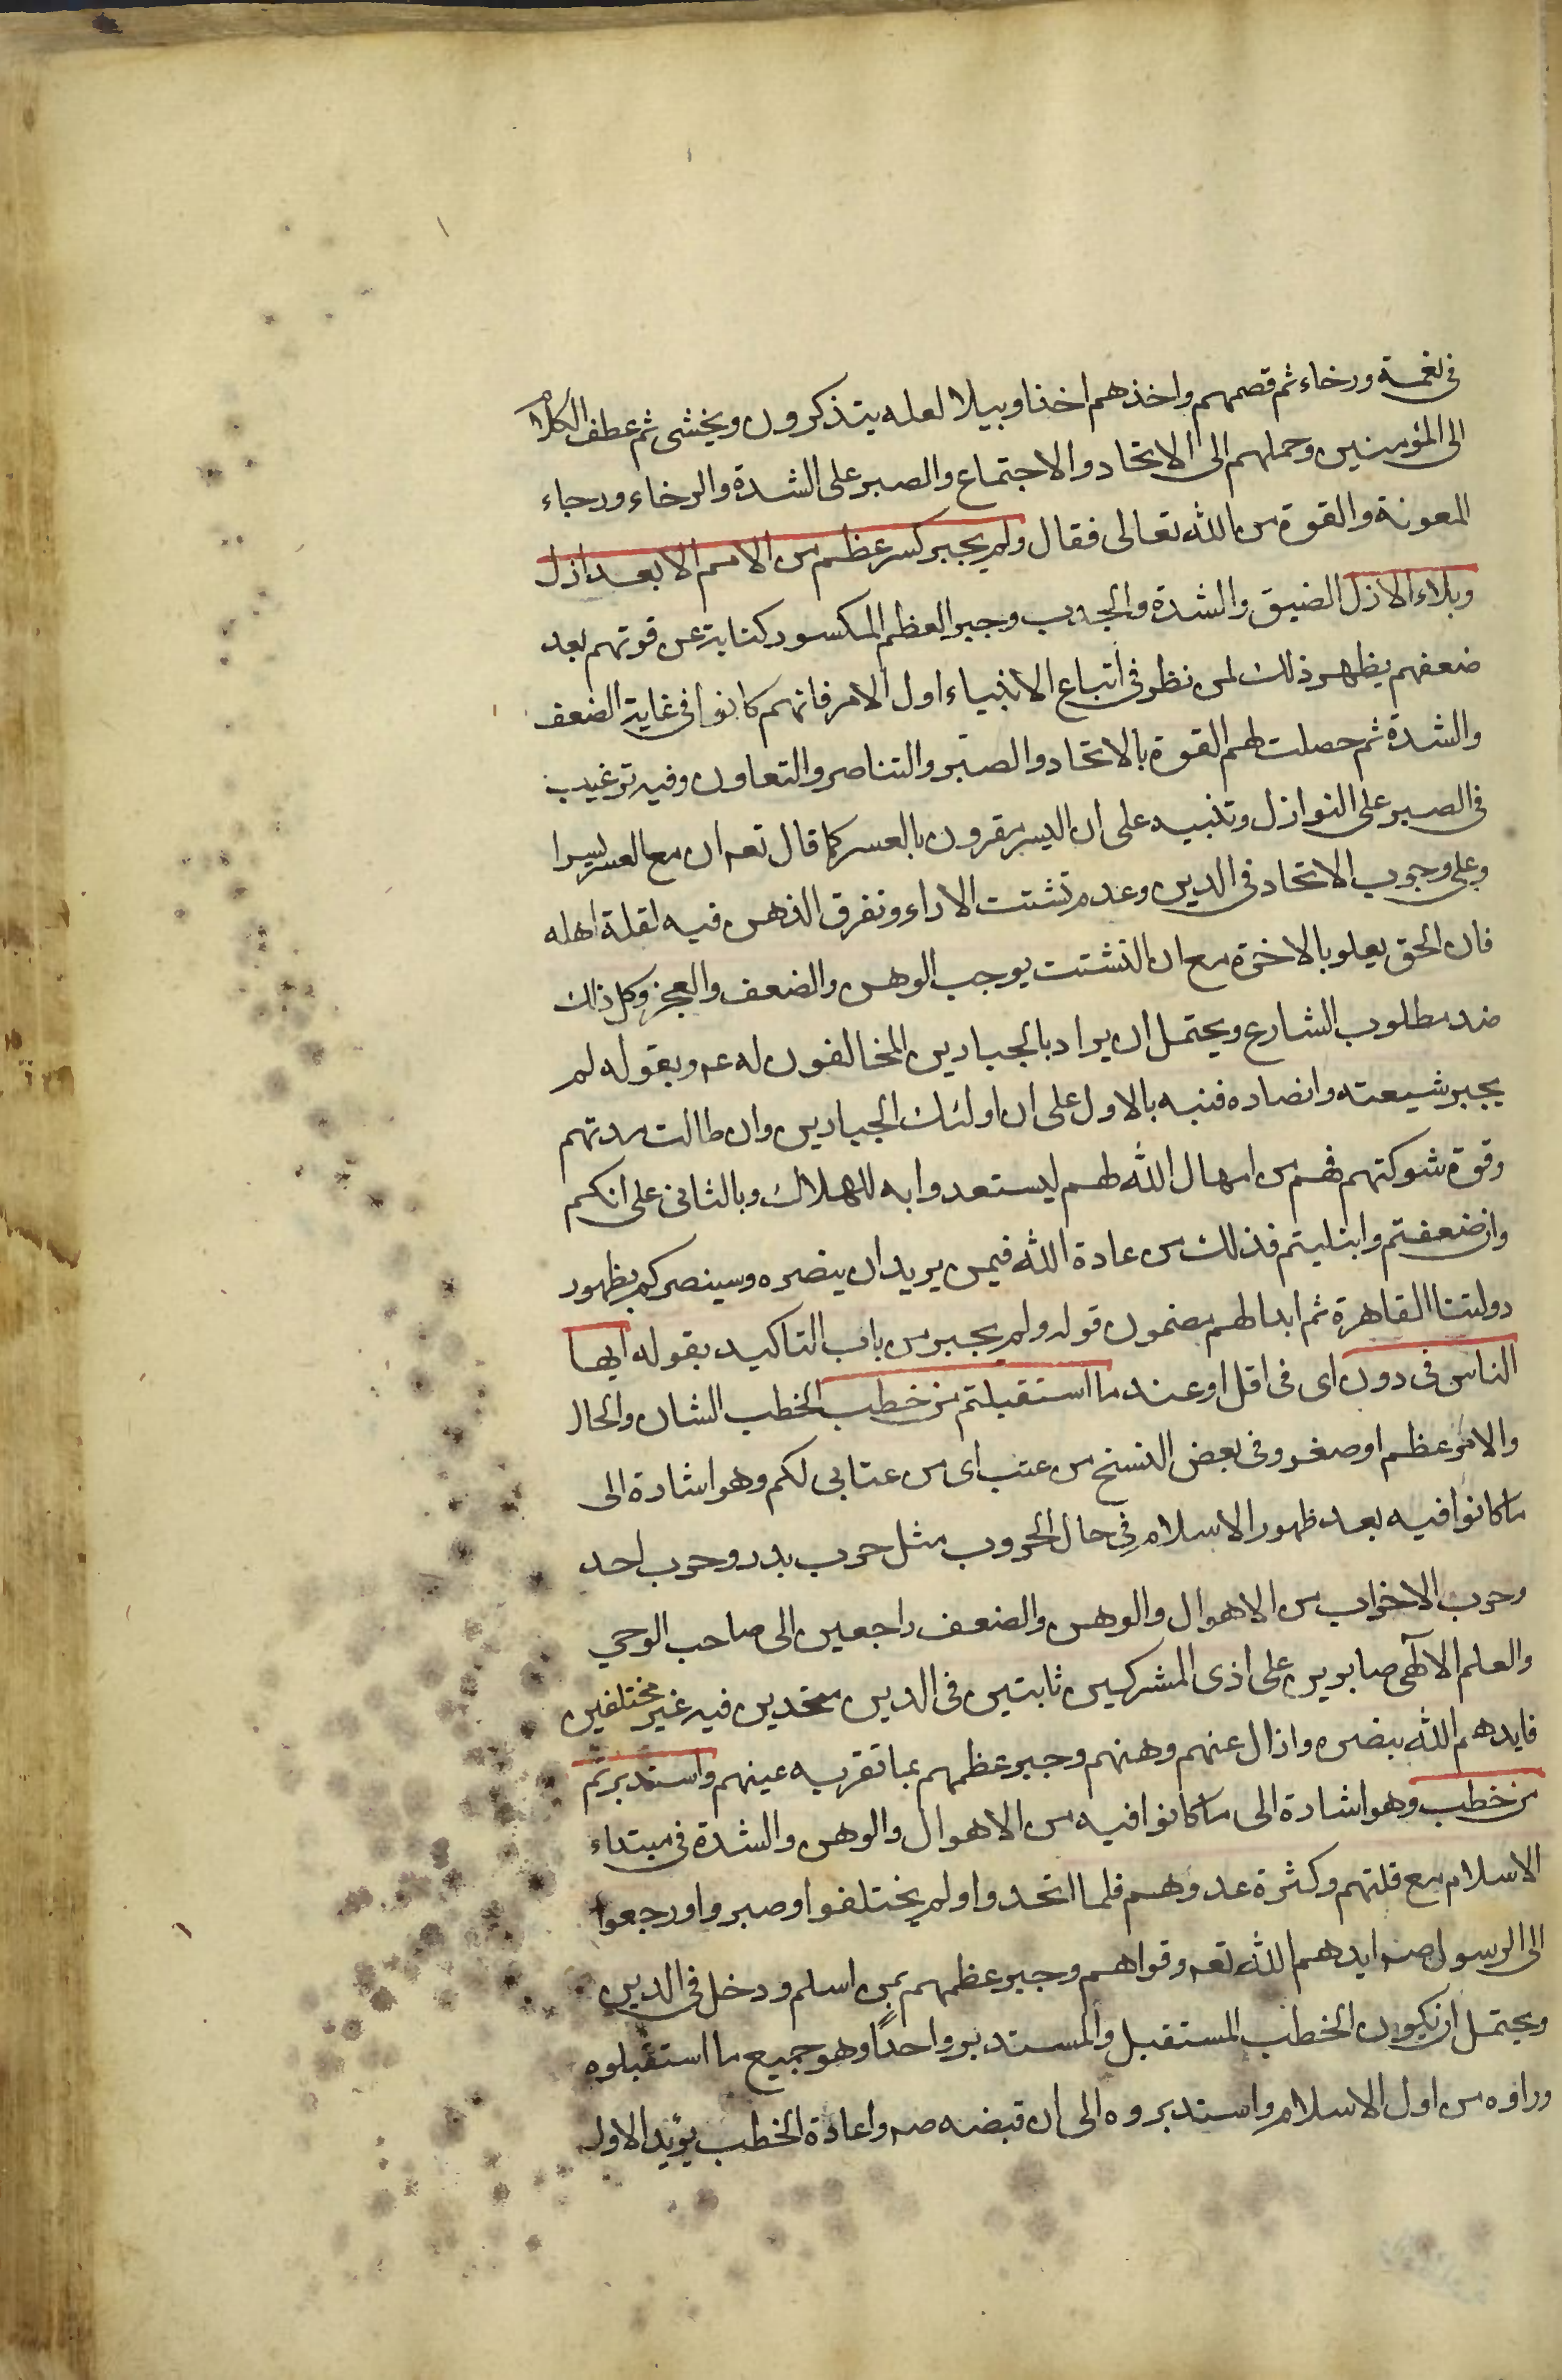 في نعمة ورخاء ثم قصمهم واخذهم اخذا وبيلا لعله يتذكرون ويخشى ثم عطف الكلام
الى المؤمنين وحملهم الى الاتحاد والاجتماع والصبر على الشدة والرخاء ورجاء
المعونة والقوة من الله تعالى فقال ولم يجبر كسر عظم من الامم الا بعد ازل
وبلاء الازل الضيق والشدة والجدب وجبر العظم المكسور كناية عن قوتهم بعد
ضعفهم يظهر ذلك لمن نظر في اتباع الانبياء اول الامر فانهم كانوا في غاية الضعف
والشدة ثم حصلت لهم القوة بالاتحاد والصبر والتناصر والتعاون وفيه ترغيب
في الصبر على النوازل وتنبيه على ان اليسر مقرون بالعسر كما قال تعه ان مع العسر يسرا
وعلى وجوب الاتحاد في الدين وعدم تشتت الاراء وتفرق الذهن فيه لقلة اهله
فان الحق يعلو بالاخرة مع ان التشتت يوجب الوهن والضعف والعجز وكل ذلك
ضد مطلوب الشارع ويحتمل ان يراد بالجبارين المخالفون له عه وبقوله لم
يجبر شيعته وانصاره فنبه بالاول على ان اولئك الجبارين وان طالت مدتهم
وقوة شوكتهم فهم من امهال الله لهم ليستعدوا به للهلاك وبالثاني على انكم
وان ضعفتم وابتليتم فذلك من عادة الله فيمن يريد ان ينصره وسينصركم بظهور
دولتنا القاهرة ثم ابدا لهم مضمون قوله ولم يجبر من باب التاكيد بقوله ايها
الناس في دون اى في اقل او عند ما استقبلتم من خطب الخطب الشان والحال
والامر عظم او صغر وفي بعض النسخ من عتب اى من عتابي لكم وهو اشارة الى
ما كانوا فيه بعد ظهور الاسلام في حال الحروب مثل حرب بدر وحرب احد
وحرب الاحزاب من الاهوال والوهن والضعف راجعين الى صاحب الوحي
والعلم الالهى صابرين على اذى المشركين ثابتين في الدين متحدين فيه غير مختلفين
فايدهم الله بنصره وازال عنهم وهنهم وجبر عظمهم بما تقر به عينهم واستدبرتم
من خطب وهو اشارة الى ما كانوا فيه من الاهوال والوهن والشدة في مبتداء
الاسلام مع قلتهم وكثرة عدوهم فلما اتحدوا ولم يختلفوا وصبروا ورجعوا
الى الرسول صه ايدهم الله تعه وقواهم وجبر عظمهم بمن اسلم ودخل في الدين
ويحتمل ان يكون الخطب المستقبل والمستدبر واحدًا وهو جميع ما استقبلوه
وراوه من اول الاسلام واستدبروه الى ان قبضه صه واعادة الخطب يؤيد الاول